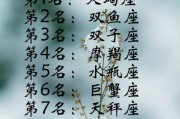 第1名：座
第2名：双鱼座
第3名：双子座
第4名：摩羯座
第5名：水瓶座
第6名：巨蟹座
第7名：天秤座